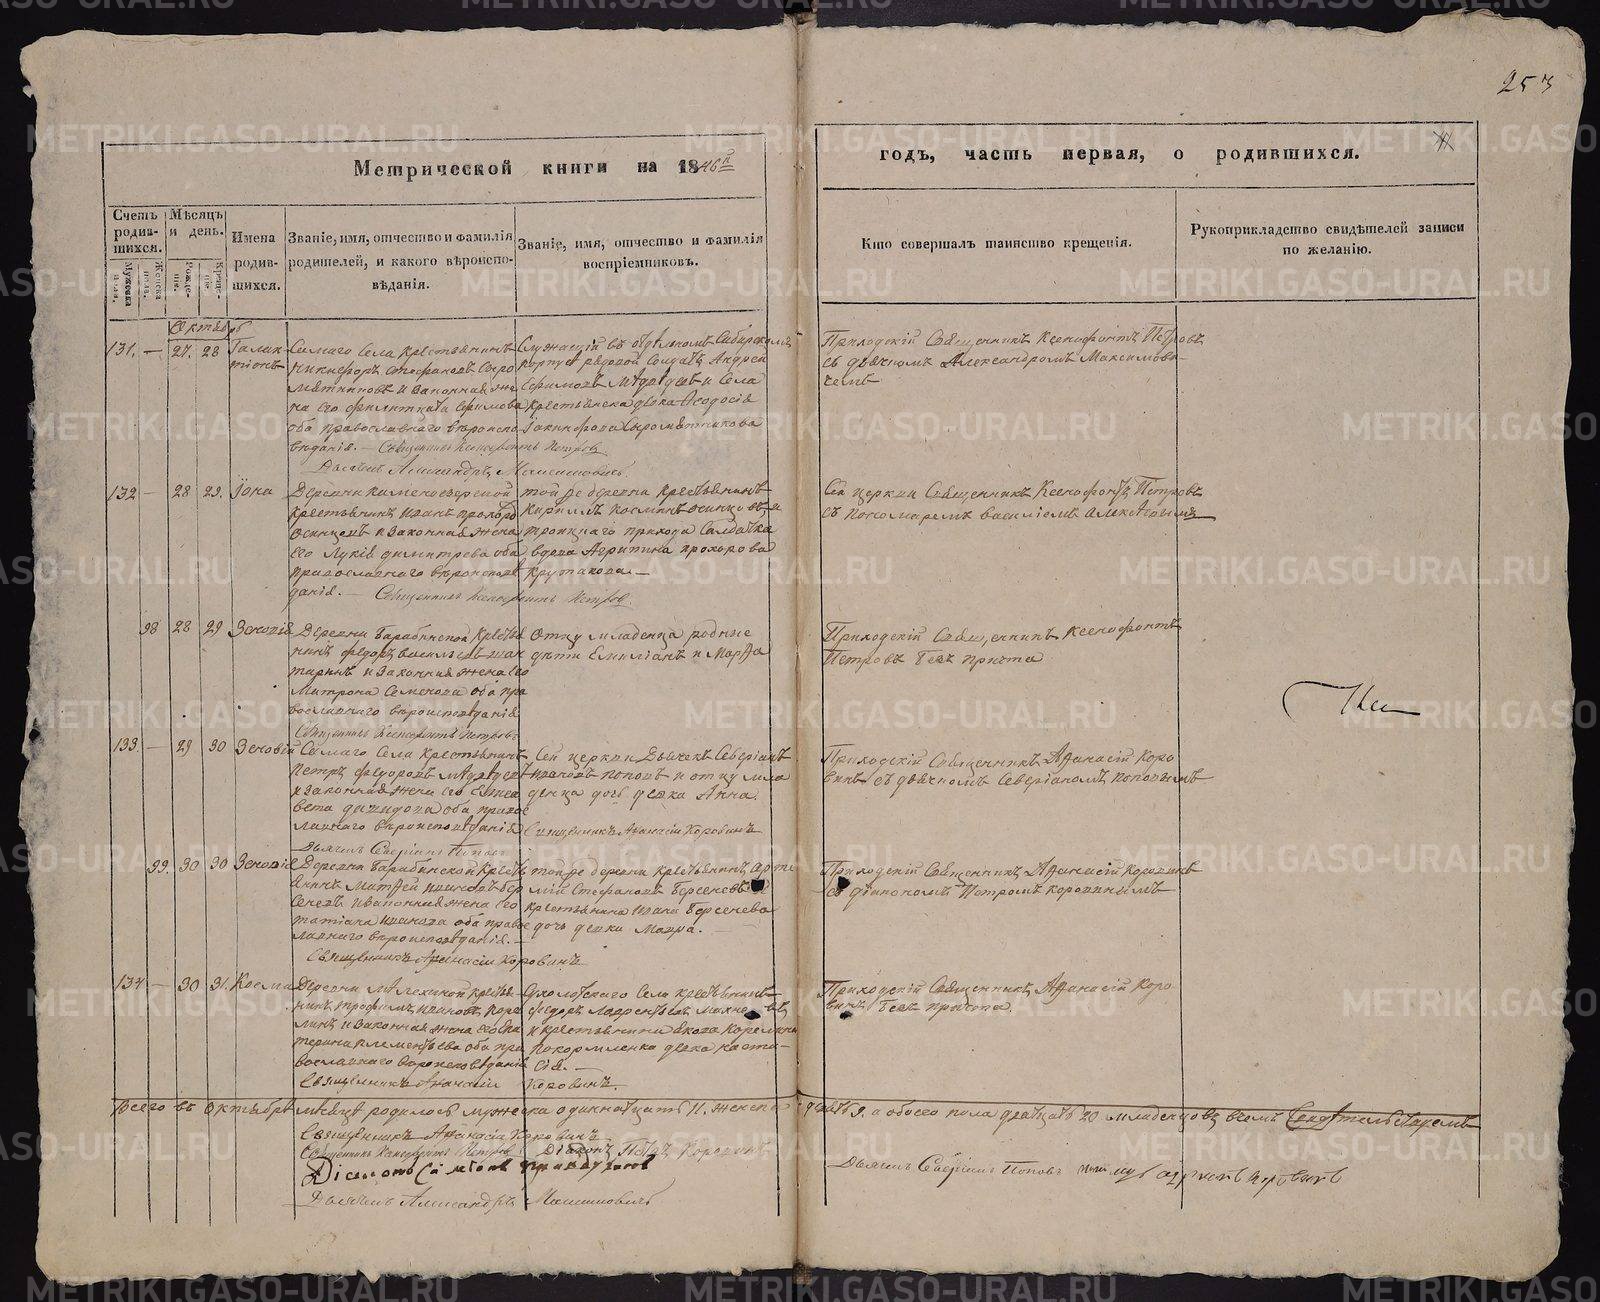 253
Метрической книги на 1846й
годъ, часть первая, о родившихся.
Счетъ родив-шихся.
Мужеска пола.
Женска пола.
Мѣсяцъ и день.
Рожде-ние.
Креще-ние
Имена родив-шихся.
Званіе, имя, отчество и фамилія родителей, и какого вѣроиспо-вѣданія.
Званіе, имя, отчество и фамилія воспріемниковъ.
Кто совершалъ таинство крещенія.
Рукоприкладство свидѣтелей записи по желанію.
Октябрь
131. — 27. 28 Галак-
тіонъ
Самаго Села крестьянинъ
Никифоръ Стефановъ Сыро
мятниковъ и законная же
на его Ефимова
оба православнаго вѣроиспо
вѣданія. — Священникъ Ксенофонтъ Петровъ
Дьячекъ Александръ Максимовичъ
Служащій въ отдѣльномъ Сибирскомъ
корпусѣ рядовой Солдатъ Андрей
Ефимовъ Медвѣдевъ и Села
крестьянска дѣвка Ѳеодосія
Сыромятникова
Приходскій Священникъ Ксенофонтъ Петровъ
съ дьячкомъ Александромъ Максимови-
чемъ
132 — 28 29. Іона
Деревни Каменоозерской
крестьянинъ Иванъ Прохоро
Осинцовъ и законная жена
его Лукія Димитрева оба
православнаго вѣроисповѣ
данія. — Священникъ Ксенофонтъ Петровъ.
той же деревни крестьянинъ
Кириллъ Косминъ Осинцовъ и
троицкаго прихода Солдатка
вдова Агрипина Прохорова
Крутакова. —
Сей церкви Священникъ Ксенофонтъ Петровъ
съ пономаремъ Василіемъ
98 28 29 Зеновія
Деревни Барабинской крестья
нинъ Федоръ Васильевъ
и законная жена его
Матрона Семенова оба пра
вославнаго вѣроисповѣданія
Священникъ Ксенофонтъ Петровъ
Отцу младенца родные
дѣти Емиліанъ и Марѳа
Приходскій Священникъ Ксенофонтъ
Петровъ безъ причта
133. — 29 30 Зеновій
Самаго Села крестьянинъ
Петръ Федоровъ Медвѣдевъ
и законная жена его Елиса
вета Давидова оба право
славнаго вѣроисповѣданія
Дьячекъ Северіанъ Поповъ
Сей церкви Дьячекъ Северіанъ
Ивановъ Поповъ и отцу мла
денца дочь дѣвка Анна.
Священникъ Афанасій Коровинъ
Приходскій Священникъ Афанасій Коро
винъ съ дьячкомъ Северіаномъ Поповымъ
99. 30 30 Зеновія
Деревни Барабинской кресть
янинъ Матѳей Ивановъ Бер
сеневъ и законная жена его
Татіана Иванова оба право
славнаго вѣроисповѣданія. —
Священникъ Афанасій Коровинъ
той же деревни крестьянинъ Арте
мій Стефановъ Берсеневъ и
крестьянина Ивана Берсенева
дочь дѣвка Мавра. —
Приходскій Священникъ Афанасій Коровинъ
съ діакономъ Петромъ Коровинымъ
134 — 30 31. Косма
Деревни Мелехиной крестья
нинъ Трофимъ Ивановъ
и законная жена его Ека
терина Клементьева оба пра
вославнаго вѣроисповѣданія
Священникъ Афанасій Коровинъ.
Села крестьянинъ
Федоръ Лаврентьевъ
и крестьянина Якова
покормленка дѣвка Наста-
сія. —
Приходскій Священникъ Афанасій Коро
винъ безъ причта.
Всего въ Октябрѣ мѣсяцѣ родилось мужеска одинадцать 11. женска девять 9. а обоего пола двадцать 20 младенцовъ въ чемъ Свидѣтельствуемъ
Священникъ Афанасій Коровинъ
Священникъ Ксенофонтъ Петровъ Діаконъ Петръ Коровинъ
Дьячекъ Александръ Максимовичъ
Дьячекъ Северіанъ Поповъ
METRIKI.GASO-URAL.RU